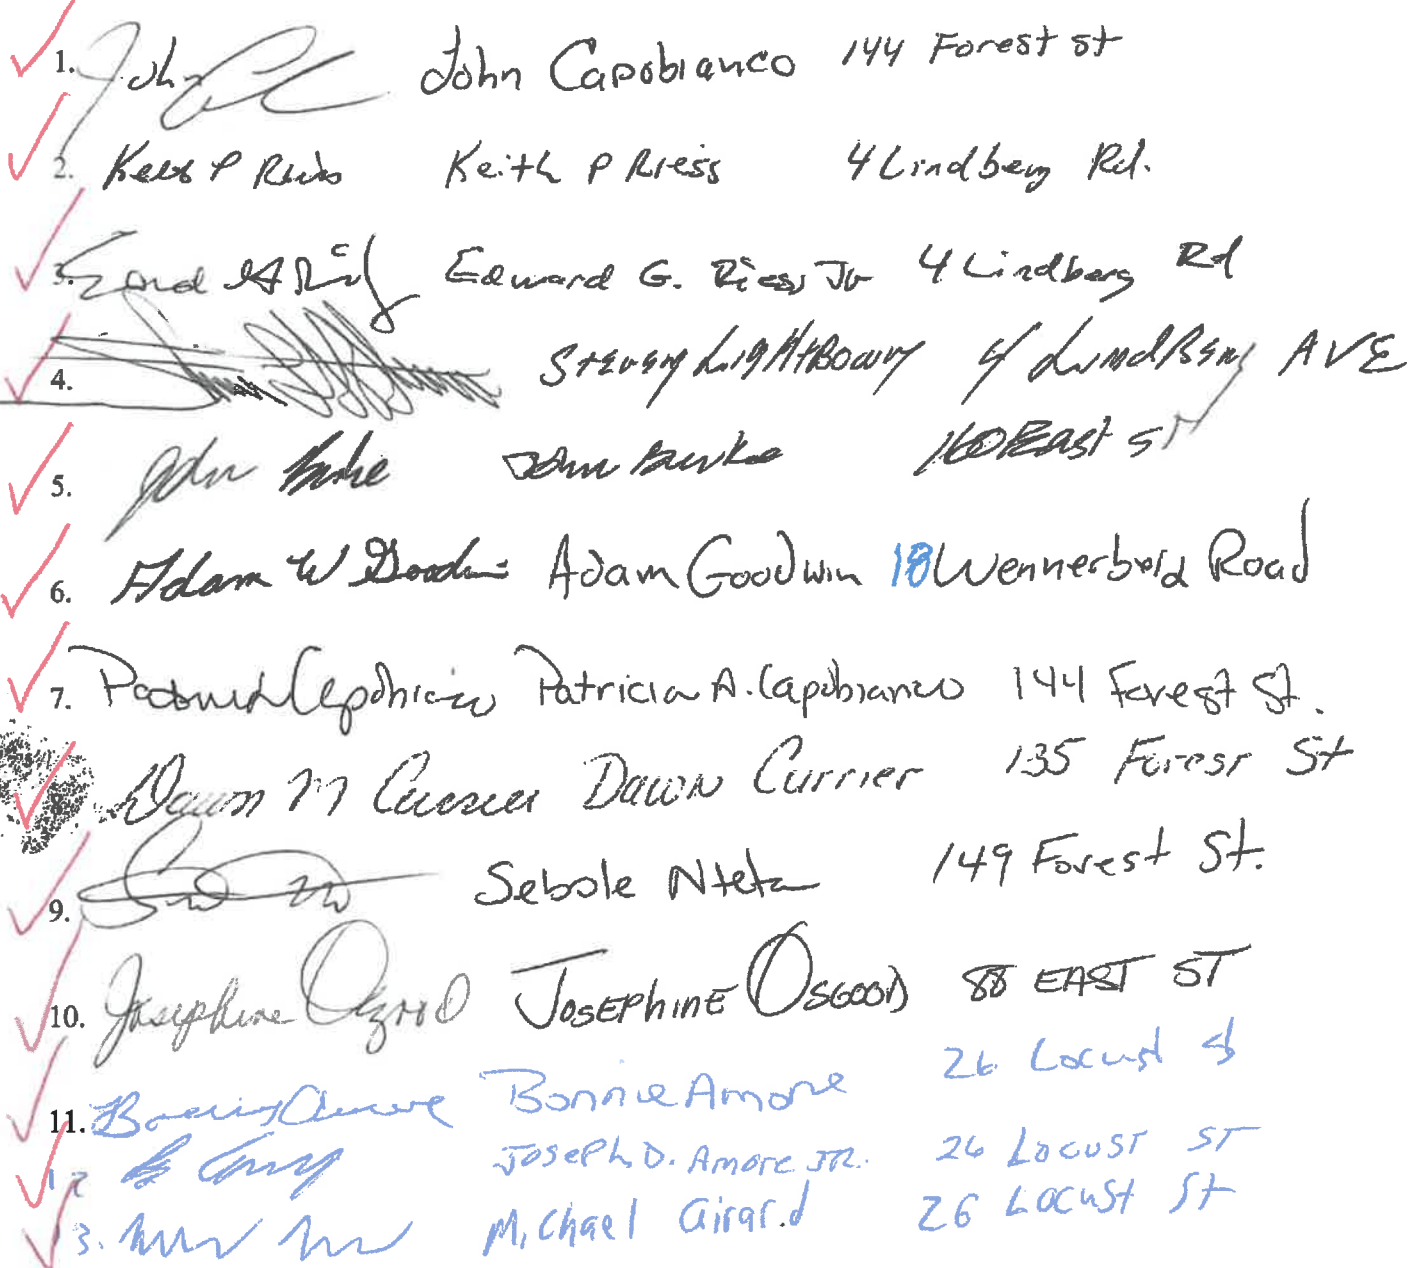 1. John John Capobianco 144 Forest St
2. Keith P Riess Keith P Riess 4 Lindberg Rd.
3. Edward G. Riess Jr 4 Lindberg Rd
4. Steven Lightbown 4 Lindberg AVE
5. John Burke John Burke 160 East St
6. Adam W Goodwin Adam Goodwin 18 Wennerberg Road
7. Patricia Capobianco Patricia A. Capobianco 144 Forest St.
Dawn M Currier Dawn Currier 135 Forest St
9. Sebole Nteta 149 Forest St.
10. Josephine Osgood JOSEPHINE OSGOOD 88 EAST ST
11. Bonnie Amore Bonnie Amore 26 Locust St
12 Joseph D. Amore JR. 26 Locust ST
13. Michael Girard 26 Locust St